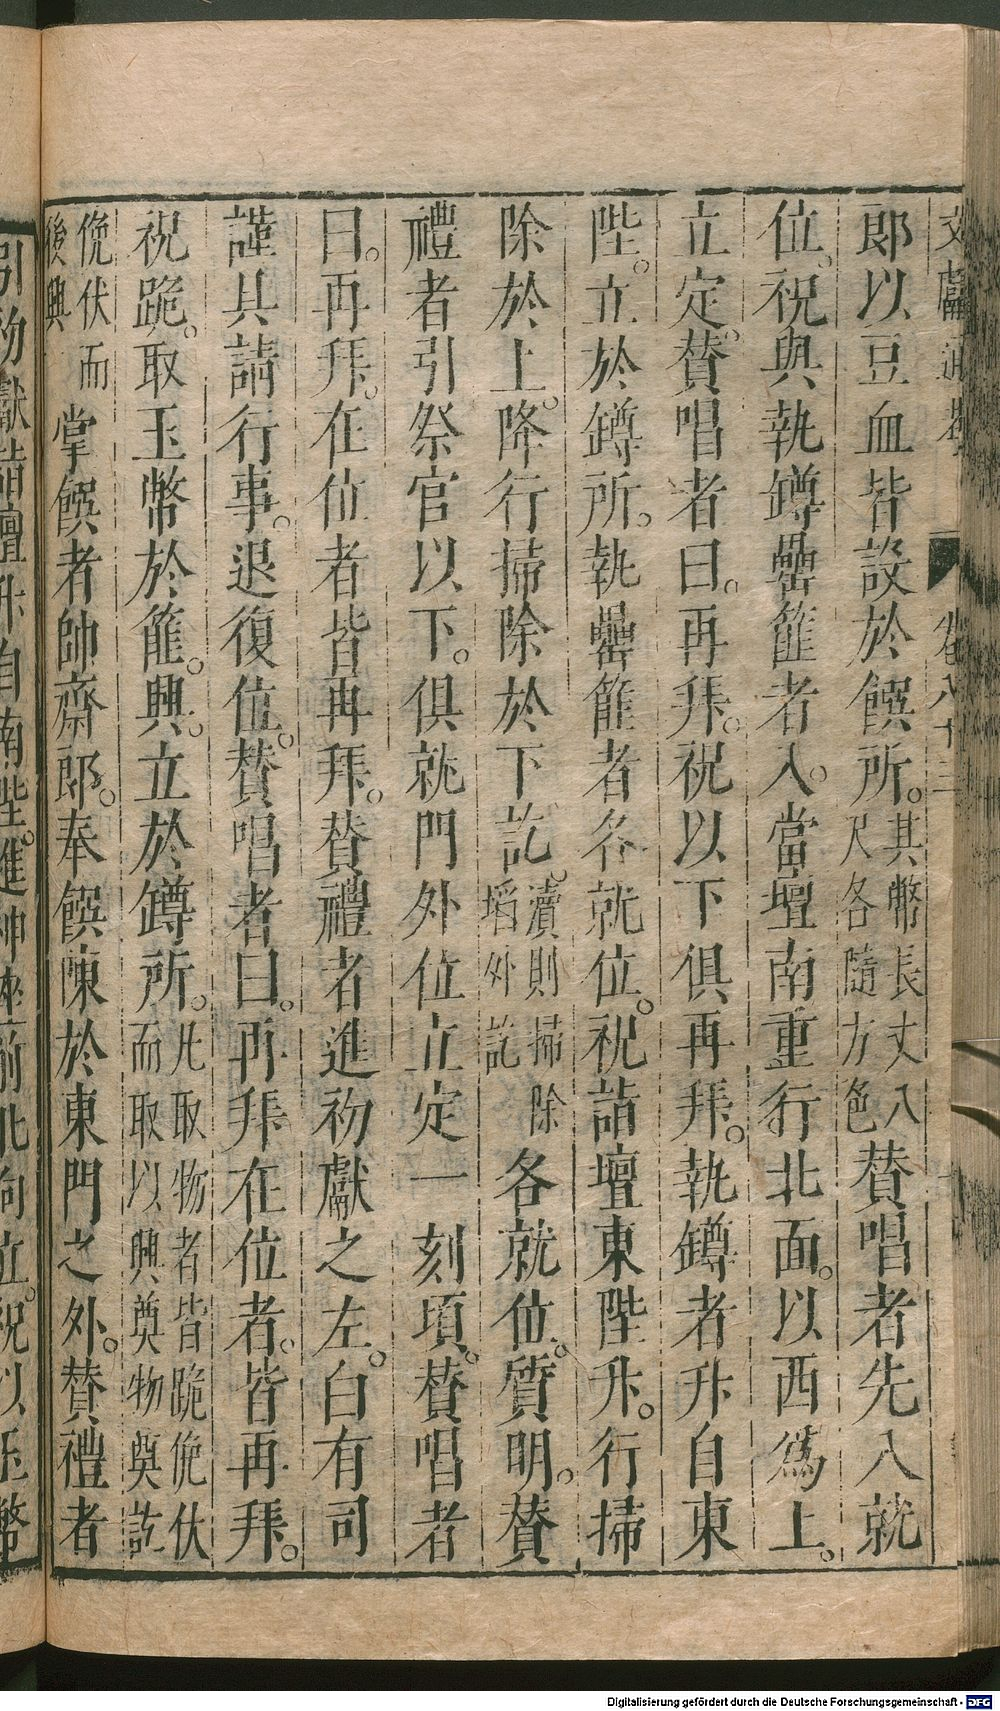 文獻通考 卷八十三
郎以豆血皆設於饌所。其幣長丈八尺各隨方色贊唱者先入就
位。祝與執罇罍篚者入。當壇南重行北面。以西爲上。
立定。贊唱者曰。再拜。祝以下俱再拜。執罇者升自東
陛。立於罇所。執罍篚者各就位。祝詣壇東陛升。行掃
除於上。降行掃除於下訖。瀆則掃除壔外訖各就位。質明。贊
禮者引祭官以下。俱就門外位立定一刻頃。贊唱者
曰。再拜。在位者皆再拜。贊禮者進初獻之左。白有司
謹具請行事。退復位。贊唱者曰。再拜在位者。皆再拜。
祝跪。取玉幣於篚。興。立於罇所。凡取物者皆跪俛伏而取以興奠物奠訖
俛伏而後興掌饌者帥齋郎。奉饌陳於東門之外。贊禮者
引初獻詣壇升自南陛。進神座前北向立。祝以玉幣
Digitalisierung gefördert durch die Deutsche Forschungsgemeinschaft - DFG